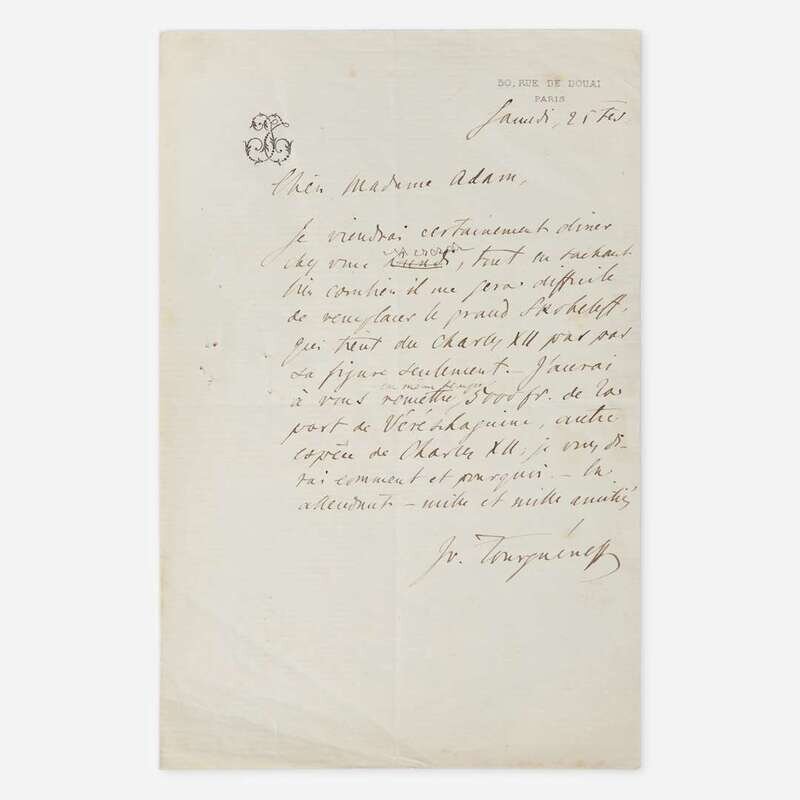 50, RUE DE DOUAI
PARIS
Samedi, 25 Fév.
Chère Madame Adam,
Je viendrai certainement dîner
chez vous mercredi, tout en sachant
bien combien il me sera difficile
de remplacer le grand Skobeleff,
qui tient du Charles XII pas par
sa figure seulement. – J'aurai
en même temps
à vous remettre 5000 fr. de la
part de Véréschaguine, autre
espèce de Charles XII; je vous di-
rai comment et pourquoi. – En
attendant – mille et mille amitiés
Iv. Tourguéneff